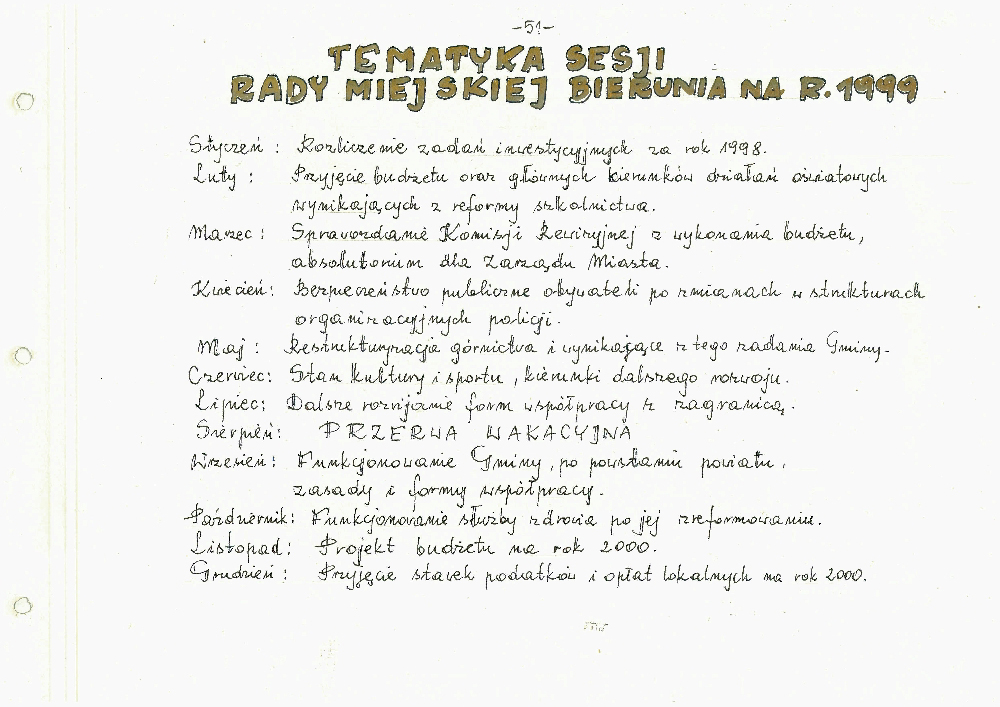 -51-
TEMATYKA SESJI
RADY MIEJSKIEJ BIERUNIA NA R. 1999
Styczeń : Rozliczenie zadań inwestycyjnych za rok 1998.
Luty : Przyjęcie budżetu oraz głównych kierunków działań oświatowych
wynikających z reformy szkolnictwa.
Marzec : Sprawozdanie Komisji Rewizyjnej z wykonania budżetu,
absolutorium dla Zarządu Miasta.
Kwiecień : Bezpieczeństwo publiczne obywateli po zmianach w strukturach
organizacyjnych policji.
Maj : Restrukturyzacja górnictwa i wynikające z tego zadania Gminy.
Czerwiec : Stan kultury i sportu, kierunki dalszego rozwoju.
Lipiec : Dalsze rozwijanie form współpracy z zagranicą.
Sierpień : PRZERWA WAKACYJNA
Wrzesień : Funkcjonowanie Gminy, po powstaniu powiatu,
zasady i formy współpracy.
Październik : Funkcjonowanie służby zdrowia po jej zreformowaniu.
Listopad : Projekt budżetu na rok 2000.
Grudzień : Przyjęcie stawek podatków i opłat lokalnych na rok 2000.